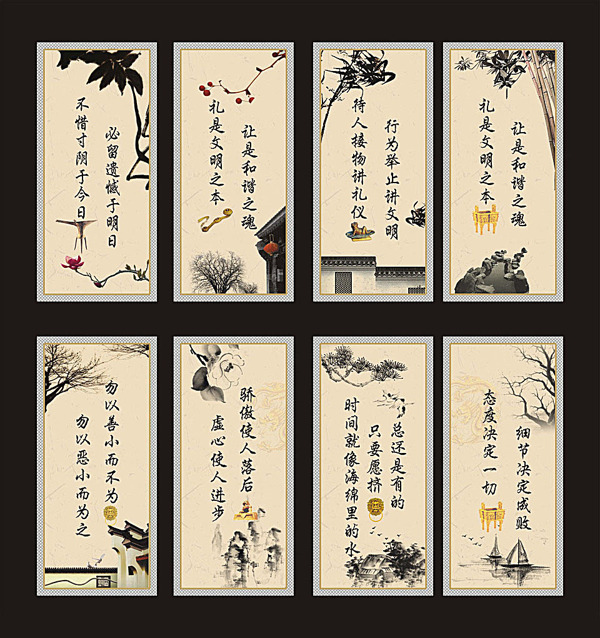 不惜寸阴于今日
必留遗憾于明日
礼是文明之本
让是和谐之魂
待人接物讲礼仪
行为举止讲文明
礼是文明之本
让是和谐之魂
勿以善小而不为
勿以恶小而为之
骄傲使人落后
虚心使人进步
时间就像海绵里的水
只要愿挤
总还是有的
态度决定一切
细节决定成败